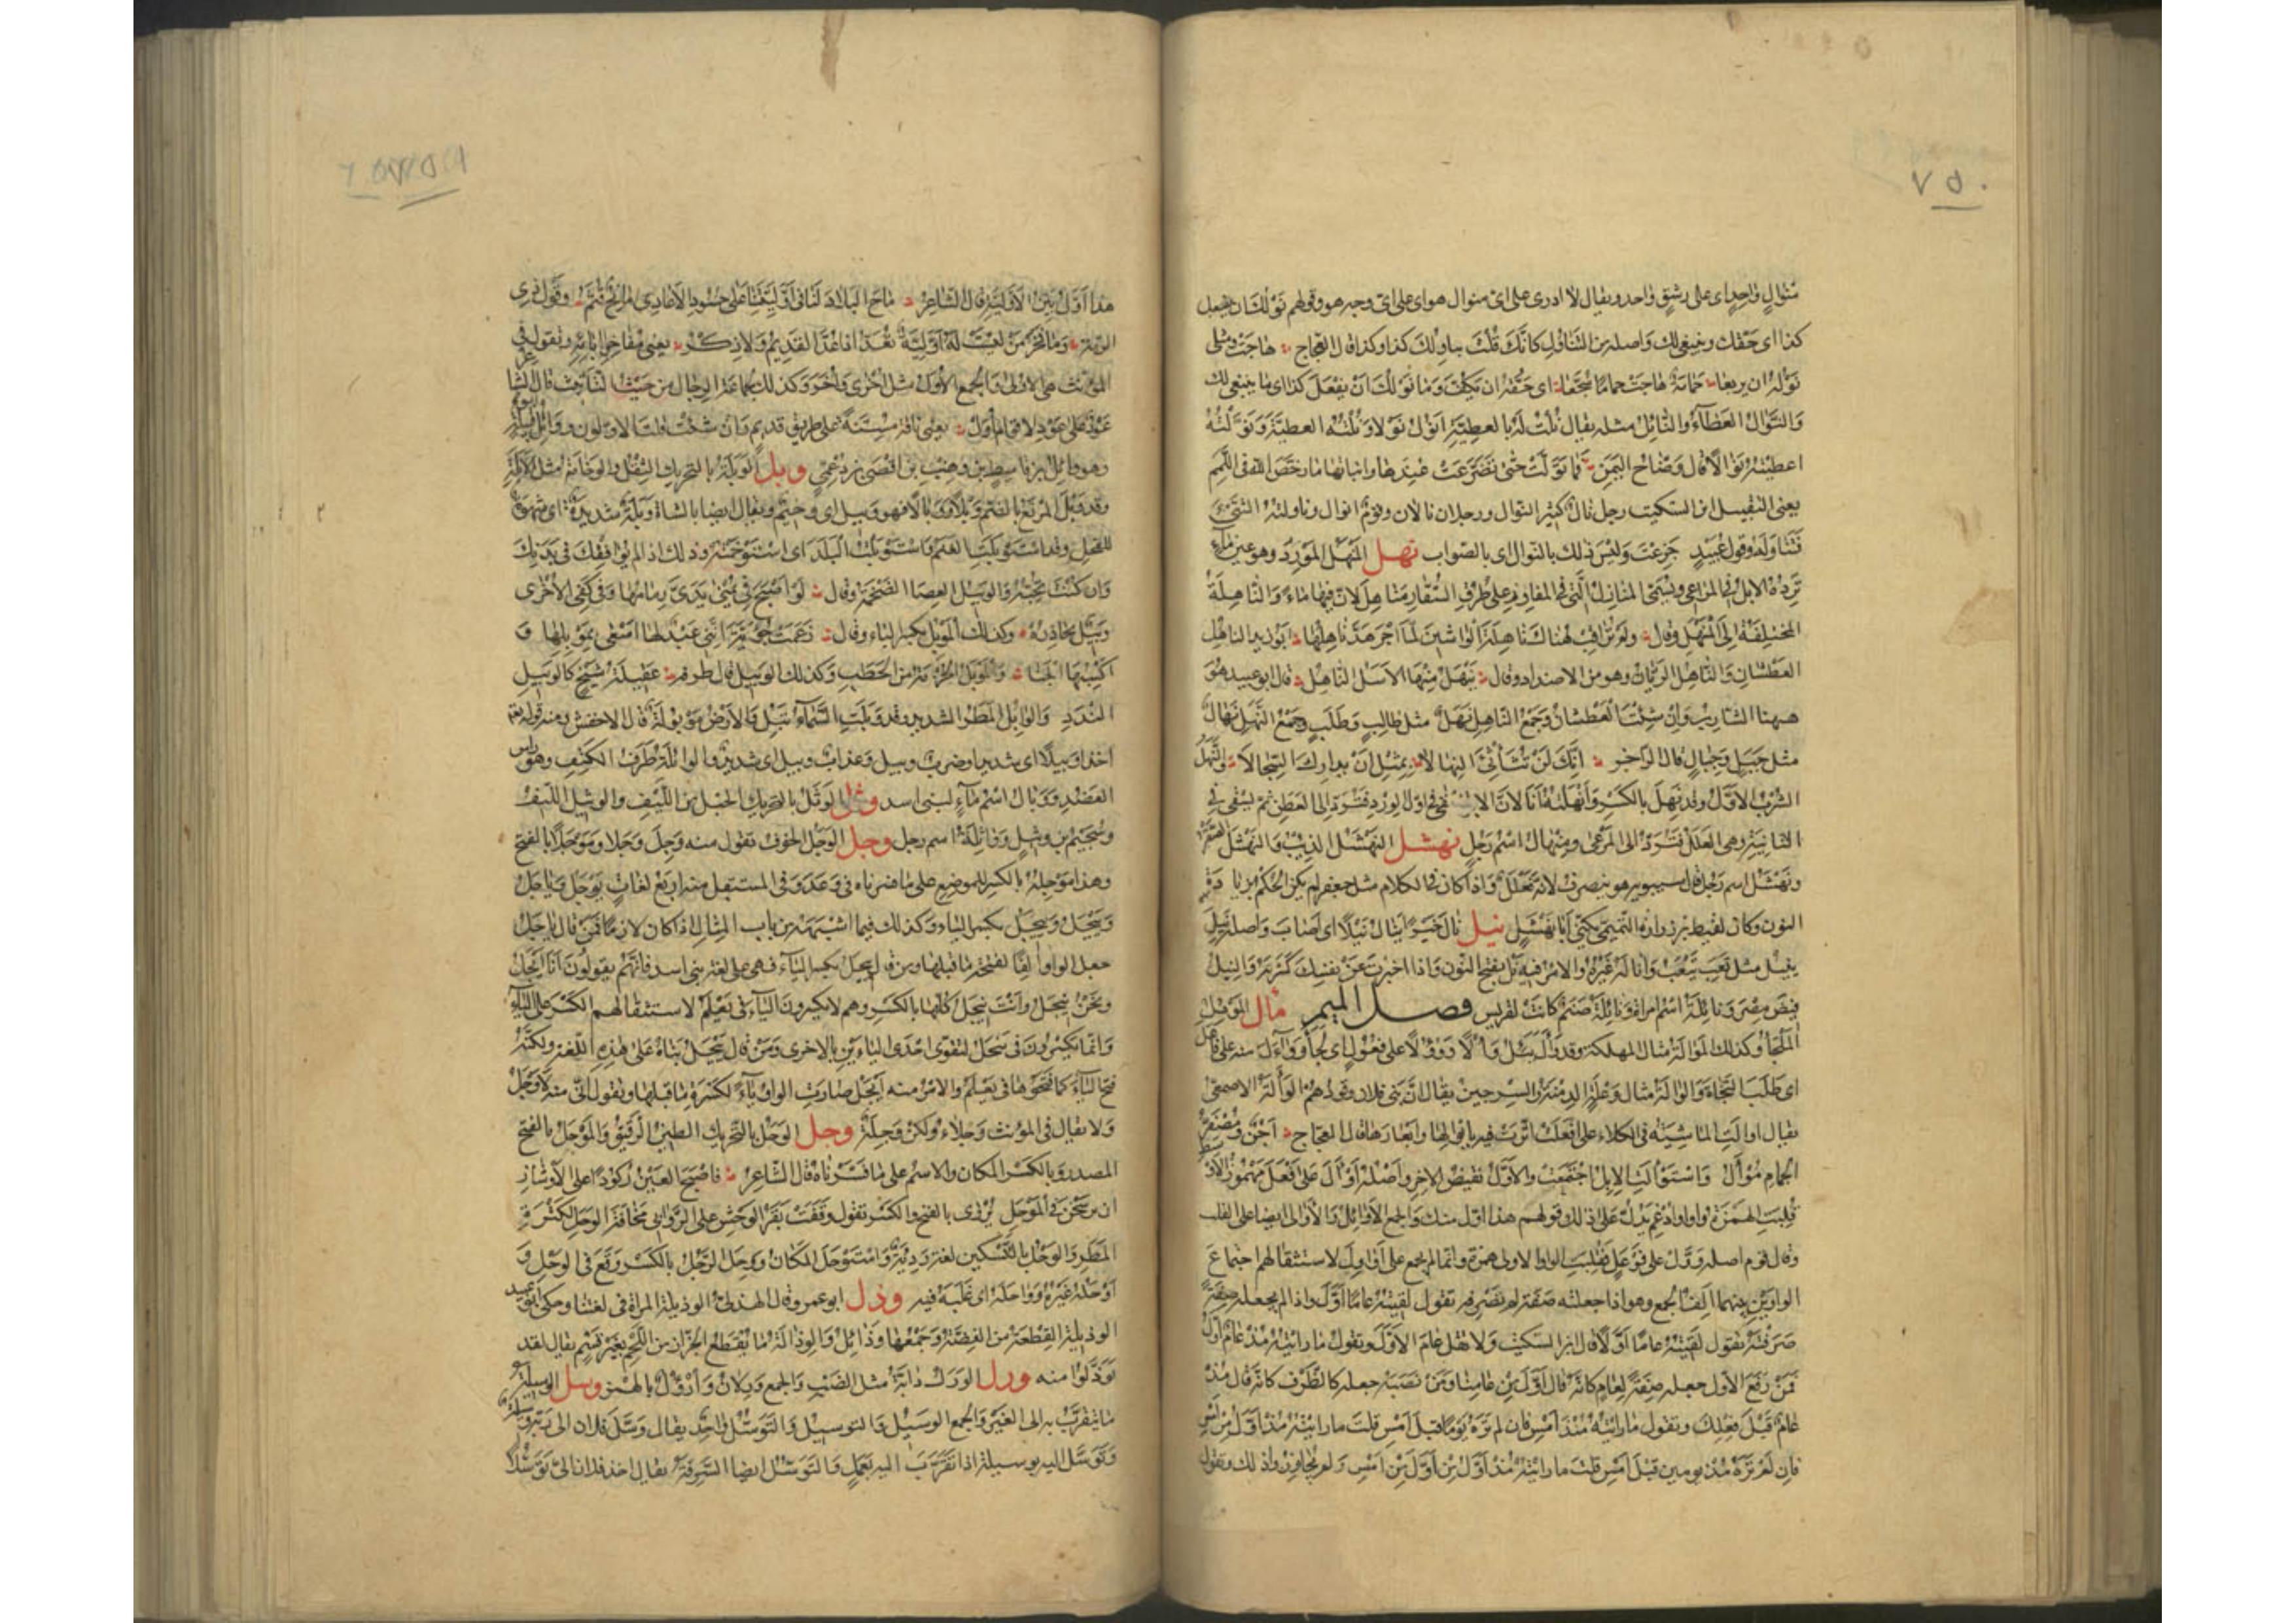 ٧٥٠
منوالٍ واحدٍ اى على رشقٍ واحد ويقال لا ادرى على اىّ منوال هو اى على اىّ وجه هو وقولهم نَوْلُكَ ان تفعل
كذا اى حقّك وينبغى لك واصله من التناول كانّك قلت تناولك كذا وكذا قال العجاج هاجت ومثلى
نوله ان يربعا حمامة هاجت حماما سُجَّعا اى حقّه ان يكفّ وما نولك ان تفعل كذا اى ما ينبغى لك
والنَّوال العَطاءُ والنائل مثله يقال نُلْتُ له بالعطيّة انول نولا ونُلته العطيّة ونوّلته
اعطيته نوالا قال وضّاح اليَمَن فما نوّلَتْ حتى تضرّعتُ عندها وانباتها ما رخّص الله فى اللَّمَم
يعنى التقبيل ابن السكيت رجل نالٌ كثير النوال ورجلان نالان وقومٌ انوال وناولته الشئ
فتناوله وقول لبيدٍ جزعتَ وليس ذلك بالنوال اى بالصواب نهل المنهل المورد وهو عين ماء
ترده الابل فى المراعى وتسمّى المنازل التى فى المفاوز على طرق السُّفّار مناهل لانّ فيها ماء والناهلة
المختلفة الى المنهل وقال ولم تراقب هناك ناهلة الواشين لمّا اجرهدّ ناهلها ابو زيد الناهل
العطشان والناهل الريّان وهو من الاضداد وقال ينهل منها الاسل الناهل قال ابو عبيد هو
ههنا الشارب وان شئت العطشان وجمع الناهل نَهَلٌ مثل طالبٍ وطَلَبٍ وجمع النَّهَل نِهالٌ
مثل جبلٍ وجبالٍ قال الراجز انّك لن تثأثئ النِّهالا بمثل ان تدارك السِّجالا والنَّهَل
الشرب الاوّل وقد نَهِلَ بالكسر وانهلته انا لانّ الابل تسقى فى اوّل الورد فتردّ الى العطن ثم تسقى
الثانية وهى العلل فتردّ الى المرعى ومنهال اسم رجل نهشل النهشل الذئب والنهشل الصقر
ونهشل اسم رجل قال سيبويه هو ينصرف لانه فعلل واذا كان فى الكلام مثل جعفر لم يكن الحكم بزيادة
النون وكان لقيط بن زرارة التميمىّ يكنّى ابا نهشل نيل نال خيرا ينال نيلا اى اصاب واصله نَيِلَ
ينيل مثل تعب يتعب واناله غيره والامر فيه نل بفتح النون واذا اخبرت عن نفسك كسرته والنيل
فيض مصر ونائلة اسم امراة ونائلة صنم كانت لقريش فصل الميم مأل الموئل
الملجأ وكذلك الموالة مثال المهلكة وقد وأل يئل وألا وؤولا على فعول اى لجأ وواءل منه على فاعل
اى طلب النجاة والوألة مثال وعلة الدمنة والسرجين يقال انّ بنى فلان وقودهم الوألة الاصمعى
يقال اوالت الماشية فى الكلاء على افعلت اثرت فيه بابوالها وابعارها قال العجاج اجنٌ ومصفرّ
الجمام موأل واستوألت الابل اجتمعت والاوّل نقيض الاخر واصله اوأل على افعل مهموز الاوسط
قلبت الهمزة واوا وادغم يدلّ على ذلك قولهم هذا اوّل منك والجمع الاوائل والاوالى ايضا على القلب
وقال قوم اصله ووّل على فوعل فقلبت الواو الاولى همزة وانما لم يجمع على اواول لاستثقالهم اجتماع
الواوين بينهما الف الجمع وهو اذا جعلته صفة لم تصرفه تقول لقيته عاما اوّل واذا لم تجعله صفة
صرفته تقول لقيته عاما اوّلا قال ابن السكيت ولا تقل عام الاوّل وتقول ما رايته مذ عامٌ اوّل
فمن رفع الاول جعله صفة لعام كانه قال اوّل من عامنا ومن نصبه جعله كالظرف كانه قال مذ
عام قبل عامك وتقول ما رايته مذ امس فان لم تره يوما قبل امس قلت ما رايته مذ اوّل من امس
فان لم تره مذ يومين قبل امس قلت ما رايته مذ اوّل من اوّل من امس ولم تجاوز ذلك وتقول
هذا اوّل بيّن الاوّليّة قال الشاعر ماح البلاد لنا فى اوّليّتنا على حسود الاعادى مائح قثم وقول ذى
الرمّة وما فخر من ليست له اوّليّة تعدّ اذا عدّ القديم ولا ذكر يعنى مفاخر ابائه وتقول فى
المؤنث هى الاولى والجمع الأُوَل مثل اخرى وأُخَر وكذلك لجماعة الرجال من حيث التانيث قال الشاعر
عَوْدٌ على عَوْدٍ لاقوام اُوَل يعنى ناقة مسنّة على طريق قديم وان شئت قلت الاوّلون ووائل قبيلة
وهو وائل بن قاسط بن هنب بن افصى بن دعمىّ وبل الوبلة بالتحريك الثقل والوخامة مثل الأبلة
وقد وبل المرتع بالضم وبلا ووبالا فهو وبيل اى وخيم ويقال ايضا بالشاة وبلة شديدة اى شهوة
للفحل وقد استوبلت الغنم واستوبلت البلد اى استوخمته وذلك اذا لم توافقك فى بدنك
وان كنت تحبّه والوبيل العصا الضخمة وقال لو اصبح فى يمنى يدىّ زمامها وفى كفّى الاخرى
وبيل تحاذره وكذلك الموبل بكسر الباء وقال زعمت جؤيّة انّنى عبد لها اسعى بموبلها و
اكسبها الجنا والموبل الحزمة من الحطب وكذلك الوبيل قال طرفة عقيلة شيخ كالوبيل
النَّدَد والوابل المطر الشديد وقد وبلت السماء تبل والارض موبولة قال الاخفش ومنه قوله تعالى
اخذا وبيلا اى شديدا وضرب وبيل وعذاب وبيل اى شديد والوابلة طرف الكتف وهو راس
العضد ووبال اسم ماء لبنى اسد وثل الوثل بالتحريك الحبل من الليف والوثيل الليف
وسحيم بن وثيل وواثلة اسم رجل وجل الوجل الخوف تقول منه وجل وجلا وموجلا بالفتح
وهذا موجله بالكسر للموضع على ما فسرناه فى وعد وفى المستقبل منه اربع لغات يوجل وياجل
وييجل وييجل بكسر الياء وكذلك فيما اشبهه من باب المثال اذا كان لازما فمن قال ياجل
جعل الواو الفا لفتحة ما قبلها ومن قال ييجل بكسر الياء فهى على لغة بنى اسد فانهم يقولون انا ايجل
ونحن نيجل وانت تيجل كلها بالكسر وهم لا يكسرون الياء فى يعلم لاستثقالهم الكسر على الياء
وانما يكسرون فى ييجل لتقوى احدى الياءين بالاخرى ومن قال ييجل بناه على هذه اللغة ولكنه
فتح الياء كما فتحوها فى يعلم والامر منه ايجل صارت الواو ياء لكسرة ما قبلها وتقول انى منه لاوجل
ولا يقال فى المؤنث وجلاء ولكن وجلة وحل الوحل بالتحريك الطين الرقيق والموحل بالفتح
المصدر وبالكسر المكان والاسم على ما فسرناه قال الشاعر فاصبح العين ركودا على الاوشاز
ان يرسخن فى الموحل يروى بالفتح والكسر تقول وقفت بقر الوحش على الروابى مخافة الوحل لكثرة
المطر والوحل بالتسكين لغة رديّة واستوحل المكان ووحل الرجل بالكسر وقع فى الوحل و
اوحله غيره وواحله اى غلبه فيه وذل ابو عمرو قال الهذلى الوذيلة المرآة فى لغتنا وحكى ابو عبيد
الوذيلة القطعة من الفضة وجمعها وذائل والوذالة ما يقطع الجزار من اللحم بغير قسم يقال لقد
توذّلوا منه ورل الورل دابّة مثل الضب والجمع ورلان وارؤل بالهمز وسل الوسيلة
ما يتقرّب به الى الغير والجمع الوسيل والوسائل والتوسيل والتوسّل واحد يقال وسّل فلان الى ربه وسيلة
وتوسّل اليه بوسيلة اذا تقرّب اليه بعمل والتوسّل ايضا السرقة يقال اخذ فلان ابلى توسّلا